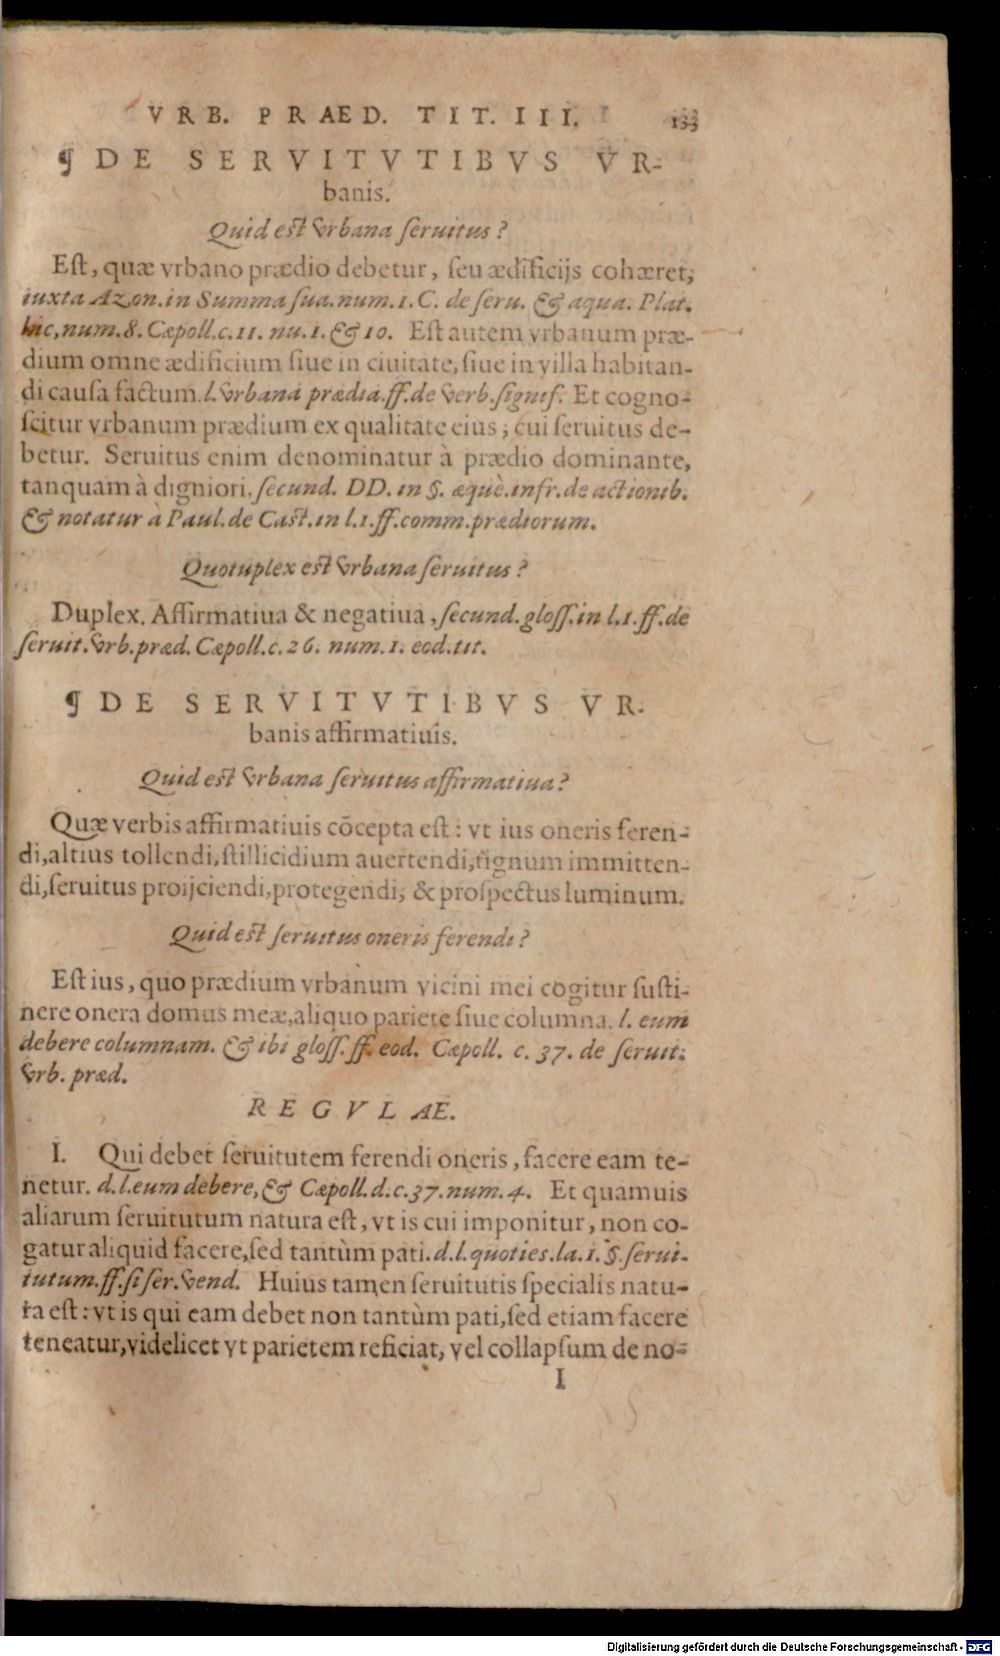 VRB. PRAED. TIT. III. 133
¶ DE SERVITVTIBVS VR-
banis.
Quid est vrbana seruitus?
Est, quæ vrbano prædio debetur, seu ædificijs cohæret,
iuxta Azon. in Summa sua. num. 1. C. de seru. & aqua. Plat.
hic, num. 8. Cæpoll. c. 11. nu. 1. & 10. Est autem vrbanum præ-
dium omne ædificium siue in ciuitate, siue in villa habitan-
di causa factum. l. vrbana prædia. ff. de verb. signif. Et cogno-
scitur vrbanum prædium ex qualitate eius, cui seruitus de-
betur. Seruitus enim denominatur à prædio dominante,
tanquam à digniori, secund. DD. in §. æquè. infr. de actionib.
& notatur à Paul. de Cast. in l. 1. ff. comm. prædiorum.
Quotuplex est vrbana seruitus?
Duplex. Affirmatiua & negatiua, secund. gloss. in l. 1. ff. de
seruit. vrb. præd. Cæpoll. c. 26. num. 1. eod. tit.
¶ DE SERVITVTIBVS VR-
banis affirmatiuis.
Quid est vrbana seruitus affirmatiua?
Quæ verbis affirmatiuis cōcepta est: vt ius oneris feren-
di, altius tollendi, stillicidium auertendi, tignum immitten-
di, seruitus proijciendi, protegendi, & prospectus luminum.
Quid est seruitus oneris ferendi?
Est ius, quo prædium vrbanum vicini mei cogitur susti-
nere onera domus meæ, aliquo pariete siue columna. l. eum
debere columnam. & ibi gloss. ff. eod. Cæpoll. c. 37. de seruit.
vrb. præd.
REGVLAE.
I. Qui debet seruitutem ferendi oneris, facere eam te-
netur. d. l. eum debere, & Cæpoll. d. c. 37. num. 4. Et quamuis
aliarum seruitutum natura est, vt is cui imponitur, non co-
gatur aliquid facere, sed tantùm pati. d. l. quoties. la. 1. §. serui-
tutum. ff. si ser. vend. Huius tamen seruitutis specialis natu-
ra est: vt is qui eam debet non tantùm pati, sed etiam facere
teneatur, videlicet vt parietem reficiat, vel collapsum de no-
I
Digitalisierung gefördert durch die Deutsche Forschungsgemeinschaft - DFG